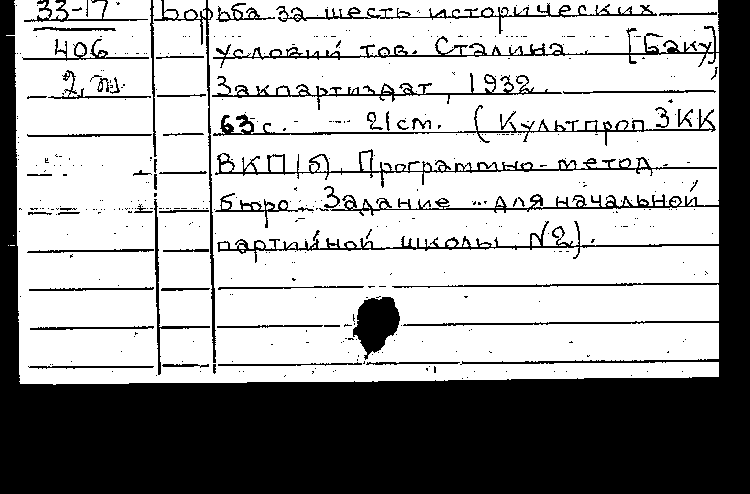 33-17 Борьба за шесть исторических
406 условий тов. Сталина. [Баку]
Закпартиздат, 1932.
63 с. - 21 cm. (Культпроп ЗКК
ВКП(б). Программно-метод.
бюро. Задание ... для начальной
партийной школы N2).